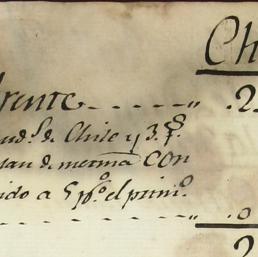 Ch
frente . . . . . „ . 2
aud.ˢ de Chile y 3.
de merma con
ido a 5 p.º el prim.º
„ . 0
2